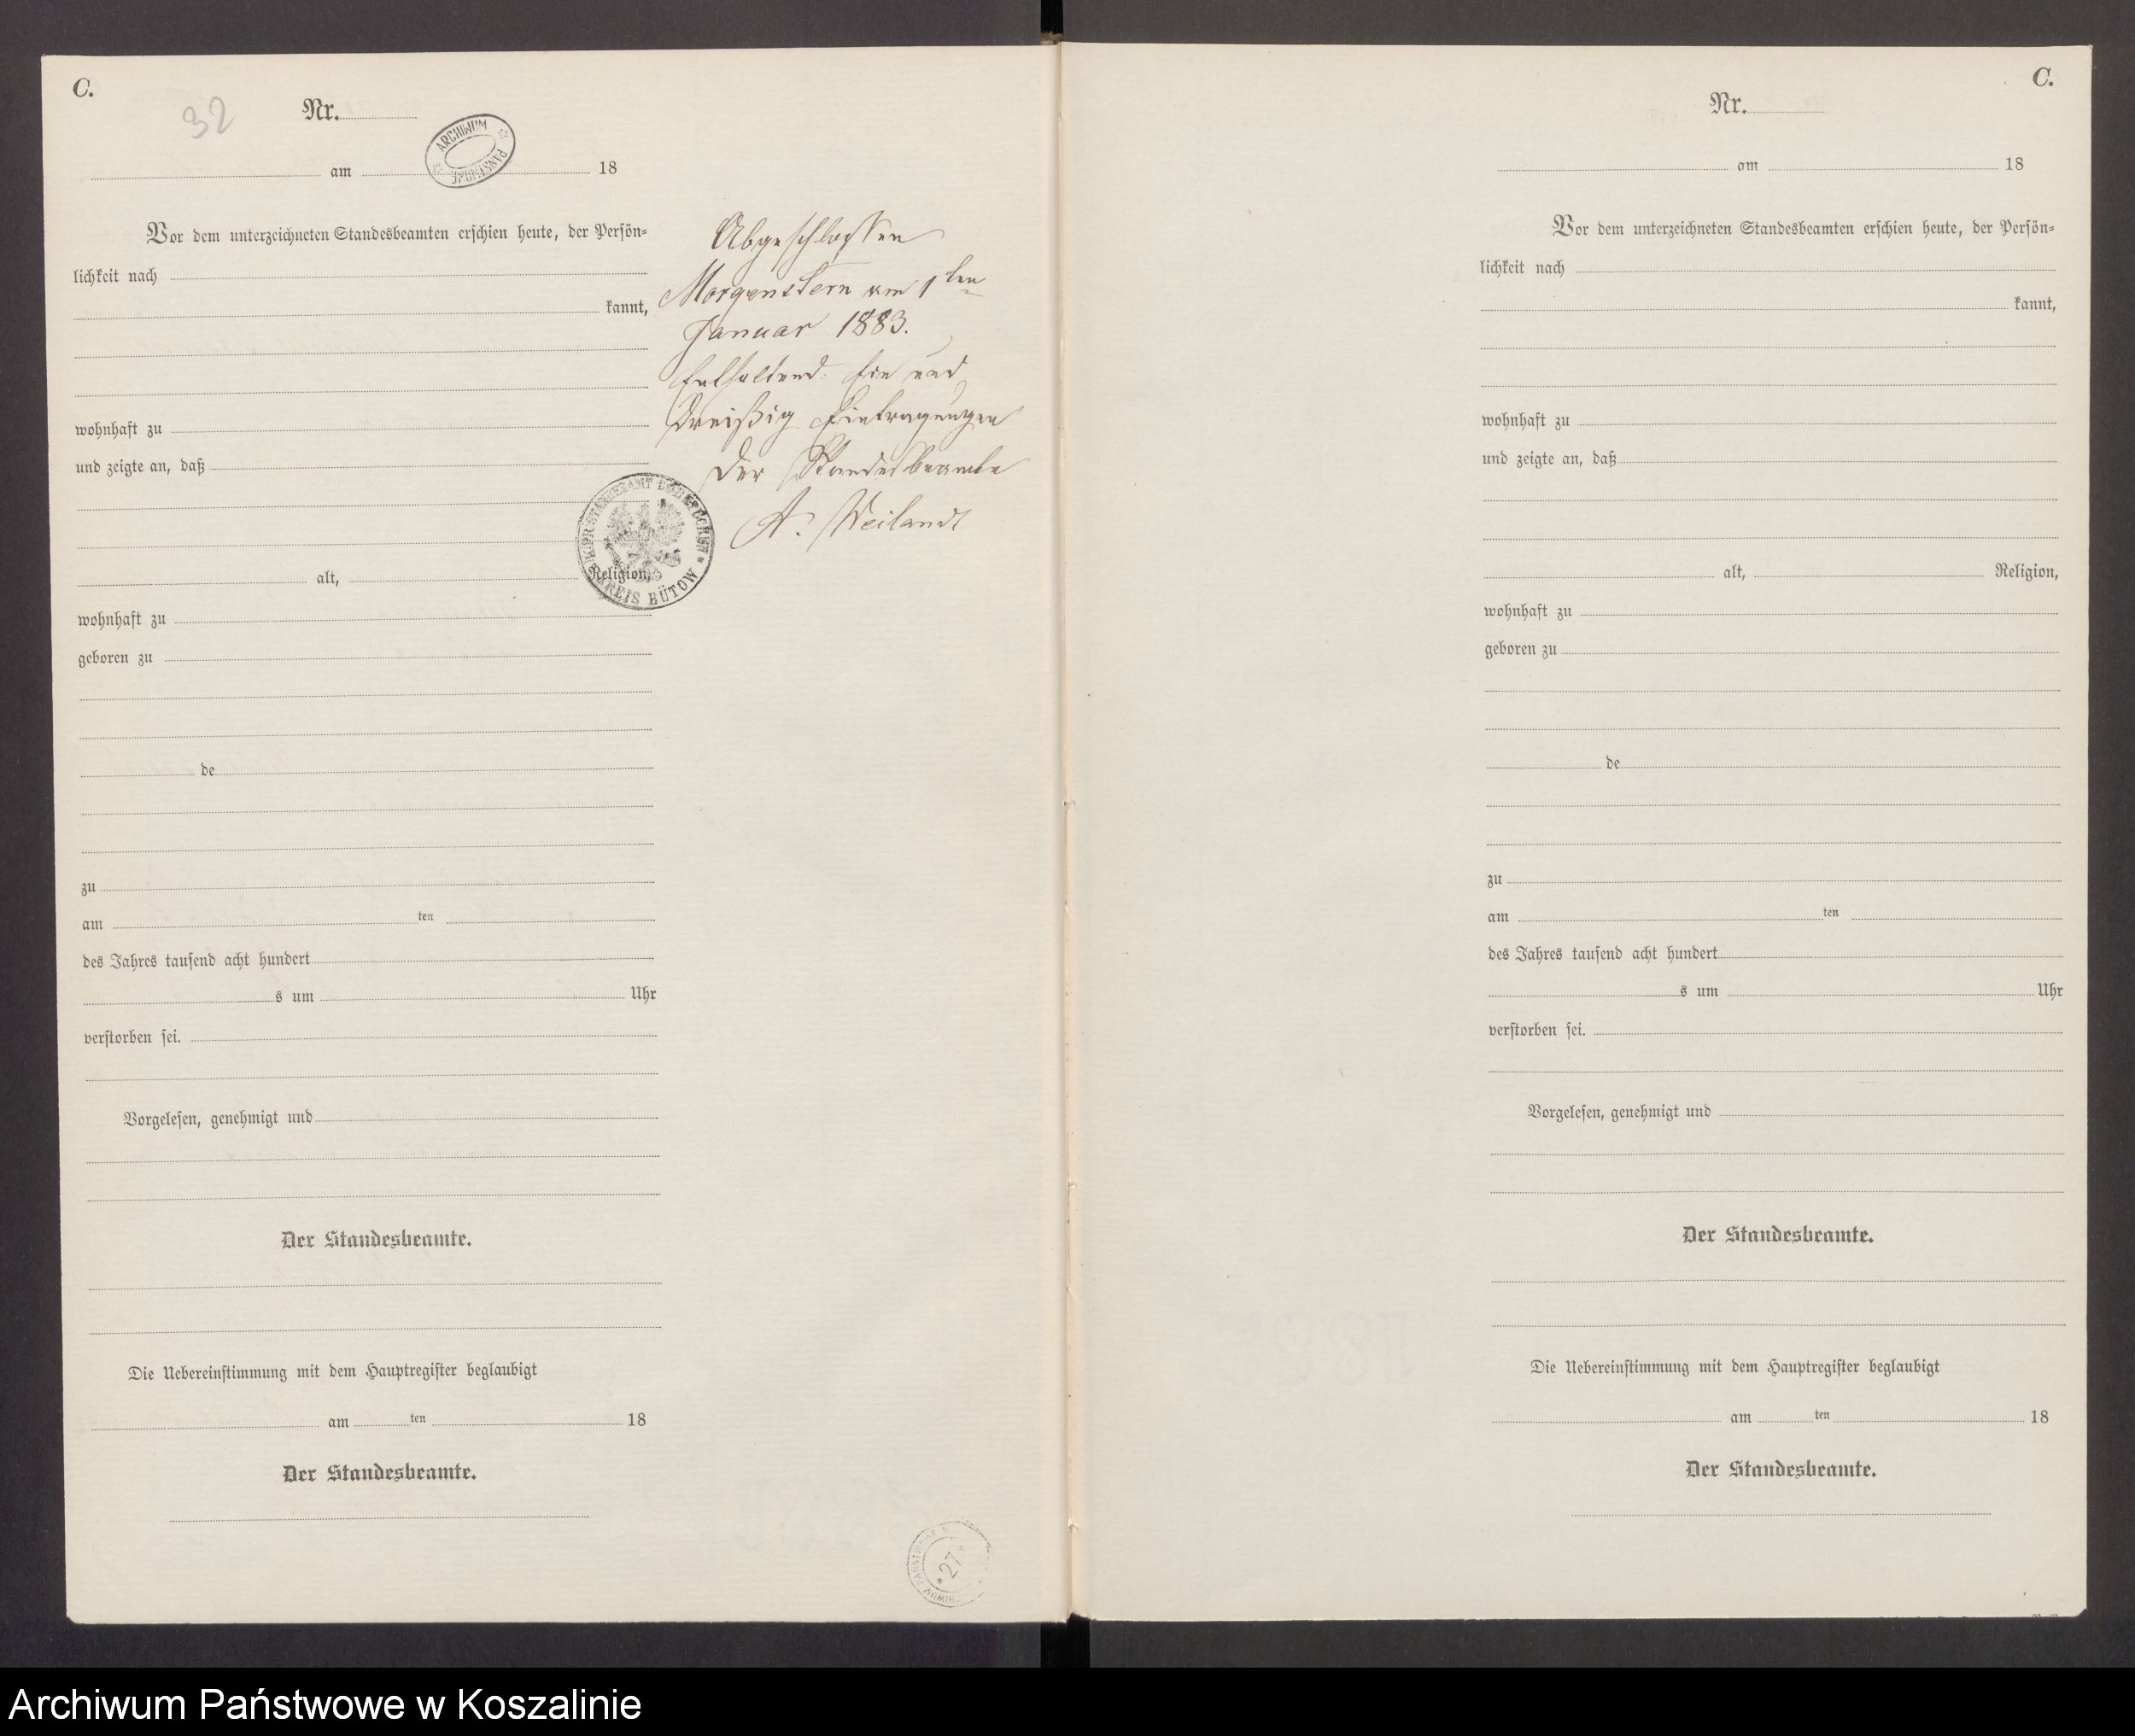 C.
32
Nr.
ARCHIWUM PAŃSTWOWE
am 18
Vor dem unterzeichneten Standesbeamten erschien heute, der Persön-
lichkeit nach
kannt,
wohnhaft zu
und zeigte an, daß
alt, Religion,
wohnhaft zu
geboren zu
de
zu
am ten
des Jahres tausend acht hundert
s um Uhr
verstorben sei.
Vorgelesen, genehmigt und
Der Standesbeamte.
Die Uebereinstimmung mit dem Hauptregister beglaubigt
am ten 18
Der Standesbeamte.
Abgeschlossen
Morgenstern am 1ten
Januar 1883.
Enthaltend Ein und
Dreißig Eintragungen
Der Standesbeamte
A. Weilandt
KREIS BÜTOW
27
C.
Nr.
am 18
Vor dem unterzeichneten Standesbeamten erschien heute, der Persön-
lichkeit nach
kannt,
wohnhaft zu
und zeigte an, daß
alt, Religion,
wohnhaft zu
geboren zu
de
zu
am ten
des Jahres tausend acht hundert
s um Uhr
verstorben sei.
Vorgelesen, genehmigt und
Der Standesbeamte.
Die Uebereinstimmung mit dem Hauptregister beglaubigt
am ten 18
Der Standesbeamte.
Archiwum Państwowe w Koszalinie